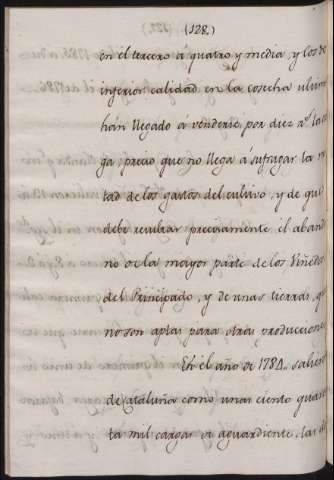 (128.)
en el tercero á quatro y media, y los de
inferior calidad en la cosecha ultima
hán llegado á venderse por diez r.s la car
ga, precio que no llega á sufragar la mi
tad de los gastos del cultivo, y de que
debe resultar precisamente el abando
no de la mayor parte de los Viñedos
del Principado, y de unas tierras, que
no son aptas para otras producciones
En el año de 1784. salieron
de Cataluña como unas ciento quaren
ta mil cargas de aguardiente, las